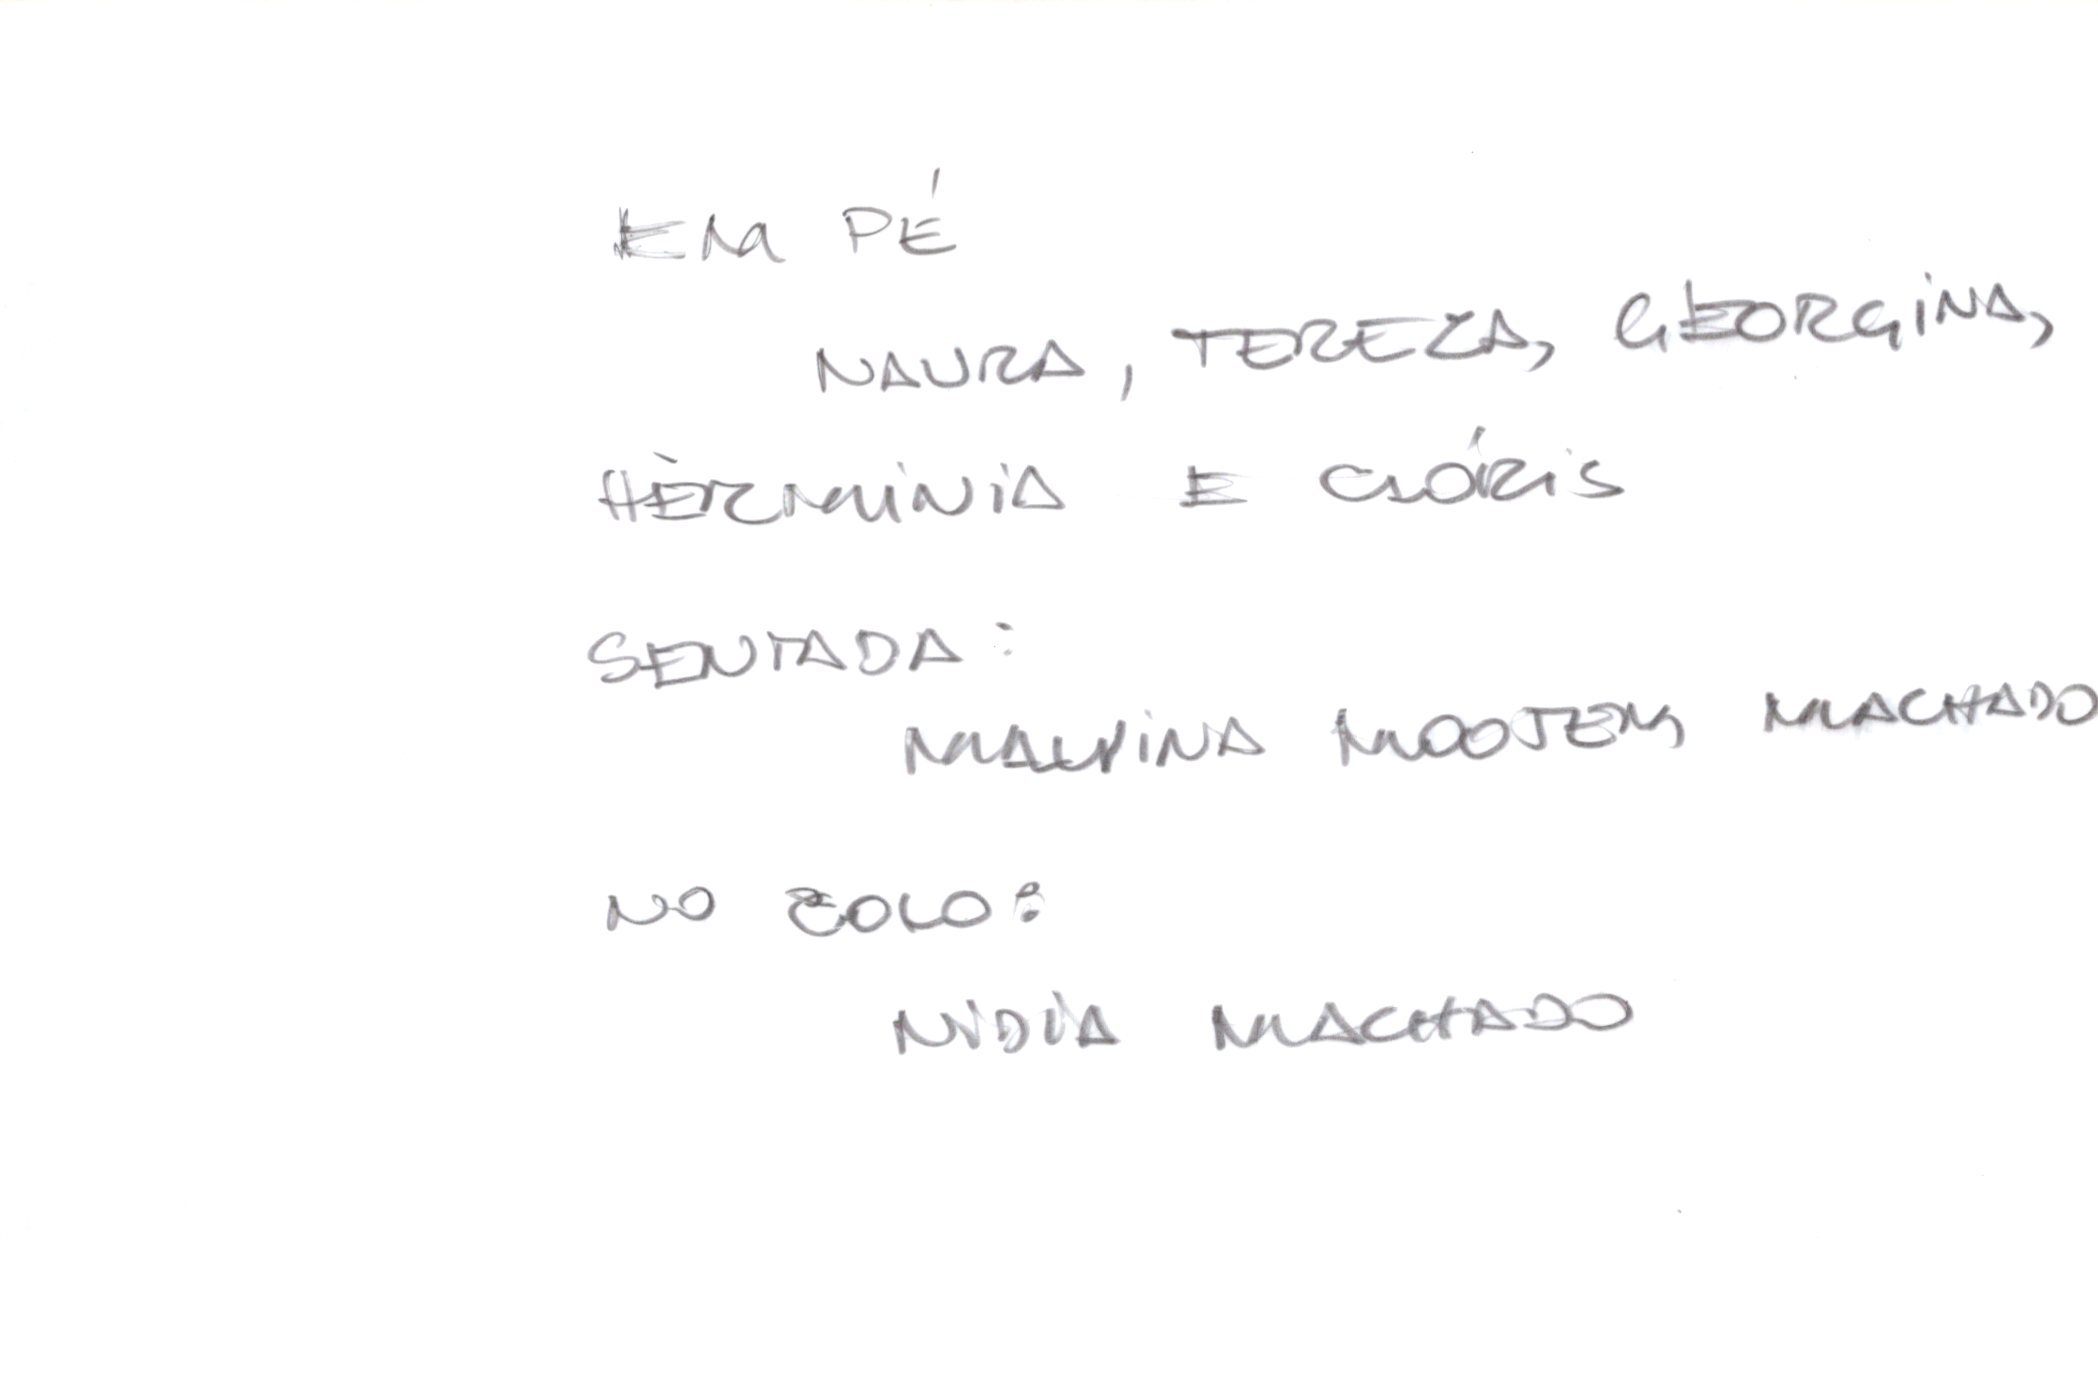 EM PÉ
NAURA, TEREZA, GEORGINA,
HÈRMINIA E CLÓRIS
SENTADA:
MALVINA MOOJEM MACHADO
NO COLO:
NIDIA MACHADO